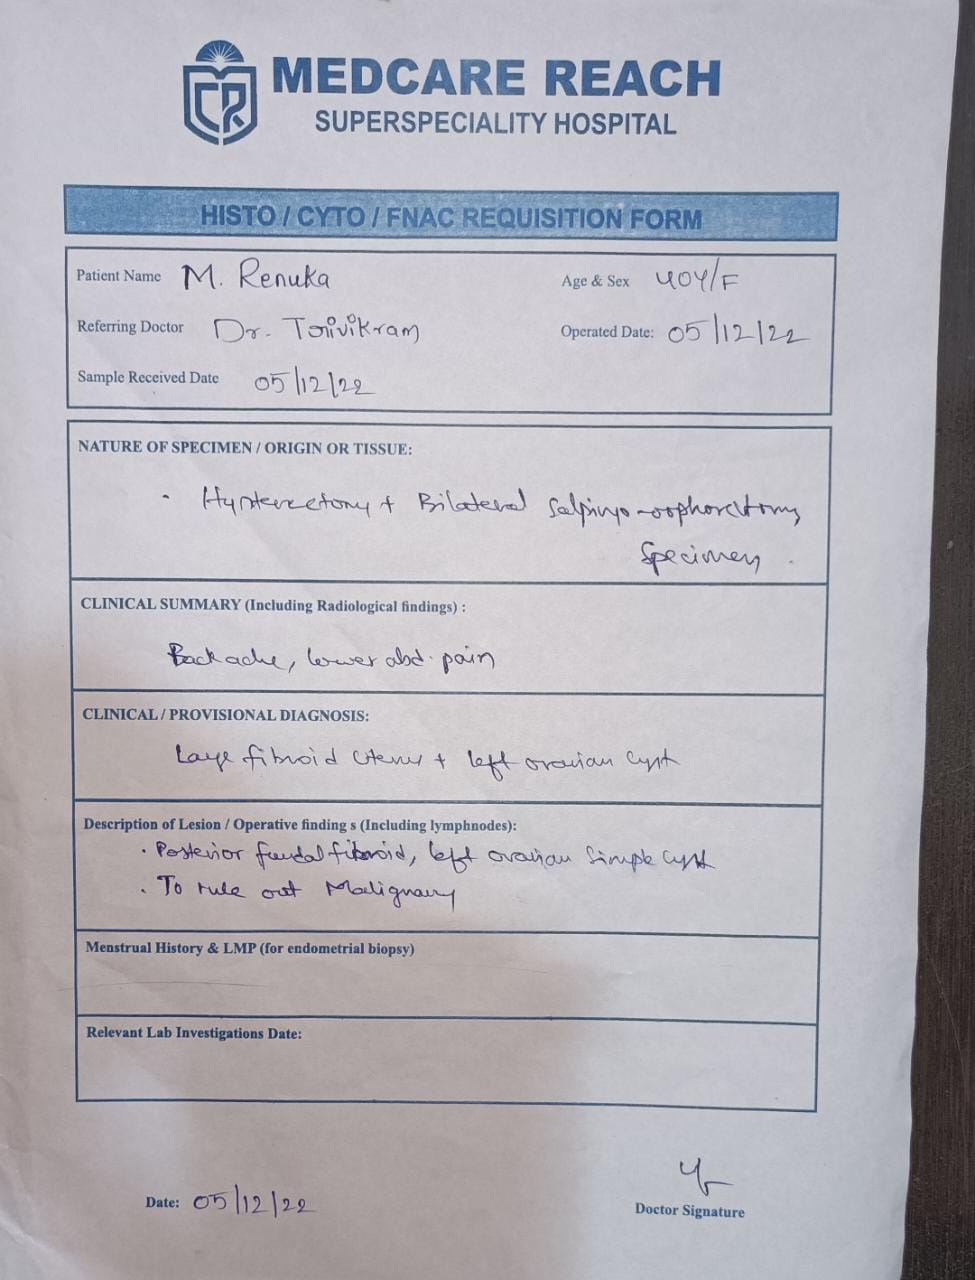 MEDCARE REACH
SUPERSPECIALITY HOSPITAL
HISTO / CYTO / FNAC REQUISITION FORM
Patient Name M. Renuka Age & Sex 40Y/F
Referring Doctor Dr. Trivikram Operated Date: 05/12/22
Sample Received Date 05/12/22
NATURE OF SPECIMEN / ORIGIN OR TISSUE:
· Hysterectomy + Bilateral Salpingo-oophorectomy
Specimen.
CLINICAL SUMMARY (Including Radiological findings) :
Backache, lower abd. pain
CLINICAL / PROVISIONAL DIAGNOSIS:
Large fibroid uterus + left ovarian cyst
Description of Lesion / Operative finding s (Including lymphnodes):
· Posterior fundal fibroid, left ovarian simple cyst
· To rule out Malignancy
Menstrual History & LMP (for endometrial biopsy)
Relevant Lab Investigations Date:
Date: 05/12/22
Doctor Signature